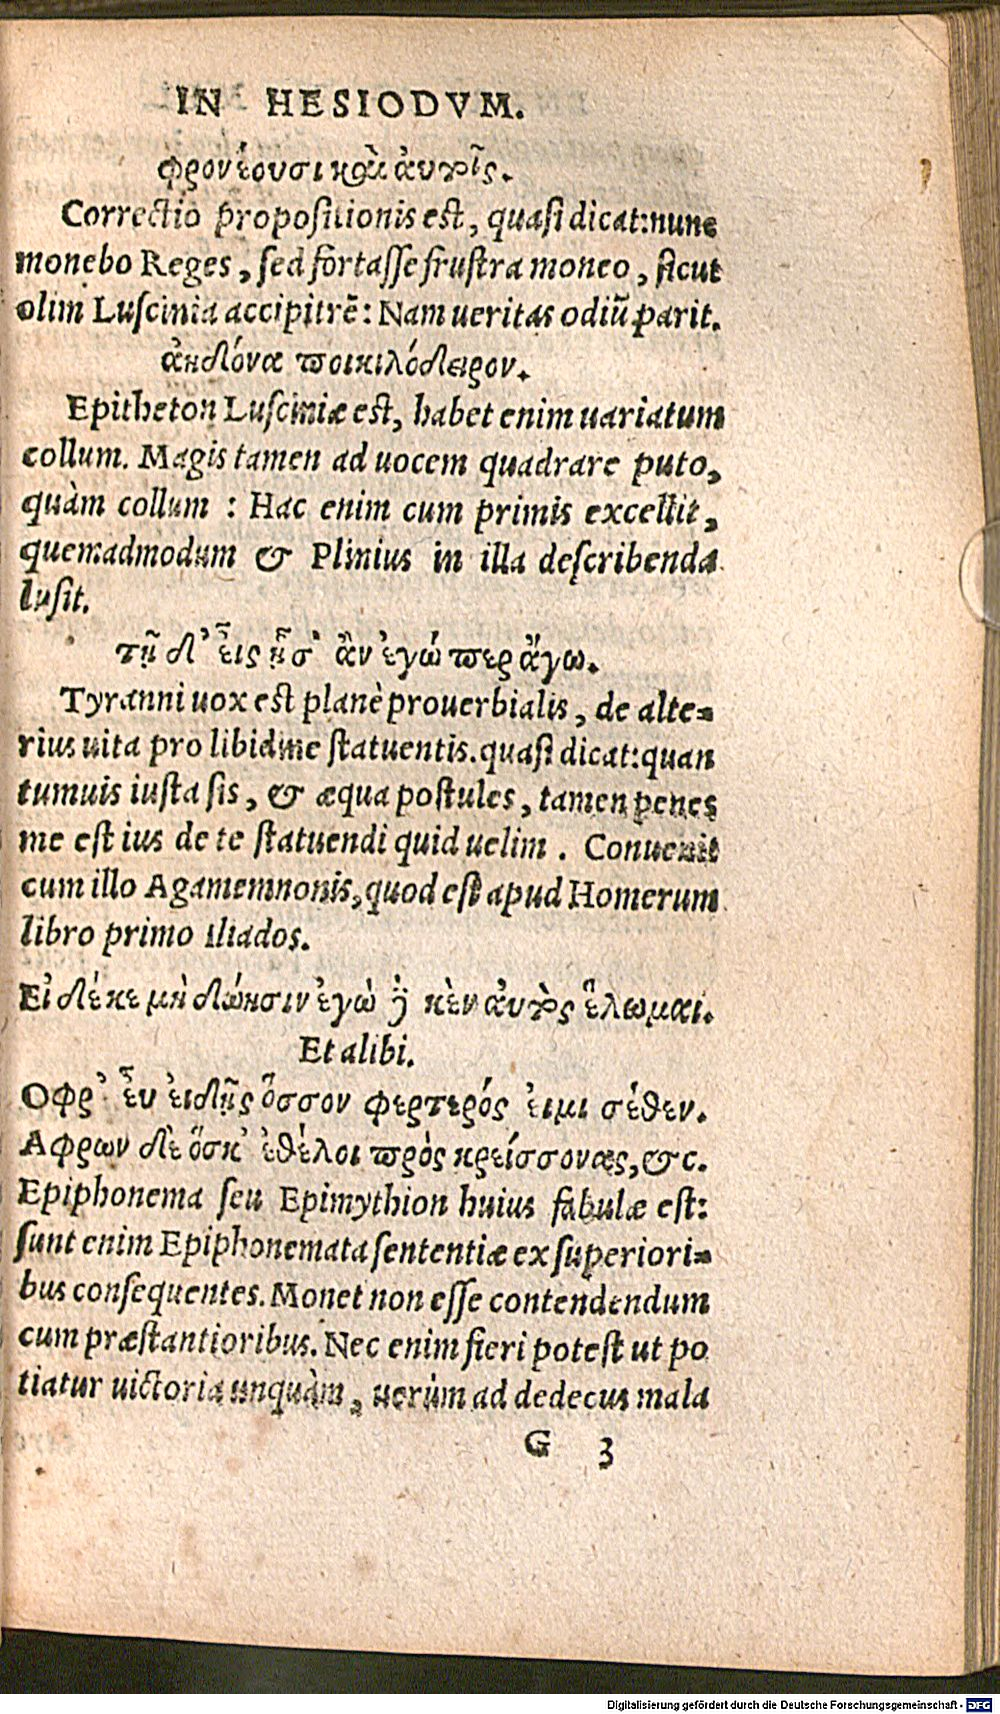 IN HESIODVM.
φρονέουσι καὶ αὐτοῖς.
Correctio propositionis est, quasi dicat: nunc
monebo Reges, sed fortasse frustra moneo, sicut
olim Luscinia accipitrē: Nam ueritas odiū parit.
ἀηδόνα ποικιλόδειρον.
Epitheton Lusciniæ est, habet enim uariatum
collum. Magis tamen ad uocem quadrare puto,
quàm collum : Hac enim cum primis excellit,
quemadmodum & Plinius in illa describenda
lusit.
τῇ δ᾽ εἶις ᾗσ᾽ ἂν ἐγώ περ ἄγω.
Tyranni uox est planè prouerbialis, de alte-
rius uita pro libidine statuentis. quasi dicat: quan
tumuis iusta sis, & æqua postules, tamen penes
me est ius de te statuendi quid uelim. Conuenit
cum illo Agamemnonis, quod est apud Homerum
libro primo Iliados.
Εἰ δέ κε μὴ δώησιν ἐγὼ δέ κὲν αὐτὸς ἕλωμαι.
Et alibi.
Οφρ᾽ εὖ εἰδῇς ὅσσον φερτερός εἰμι σέθεν.
Αφρων δὲ ὅσκ᾽ ἐθέλοι πρὸς κρείσσονας, &c.
Epiphonema seu Epimythion huius fabulæ est:
sunt enim Epiphonemata sententiæ ex superiori-
bus consequentes. Monet non esse contendendum
cum præstantioribus. Nec enim fieri potest ut po
tiatur uictoria unquàm, uerùm ad dedecus mala
G 3
Digitalisierung gefördert durch die Deutsche Forschungsgemeinschaft - DFG